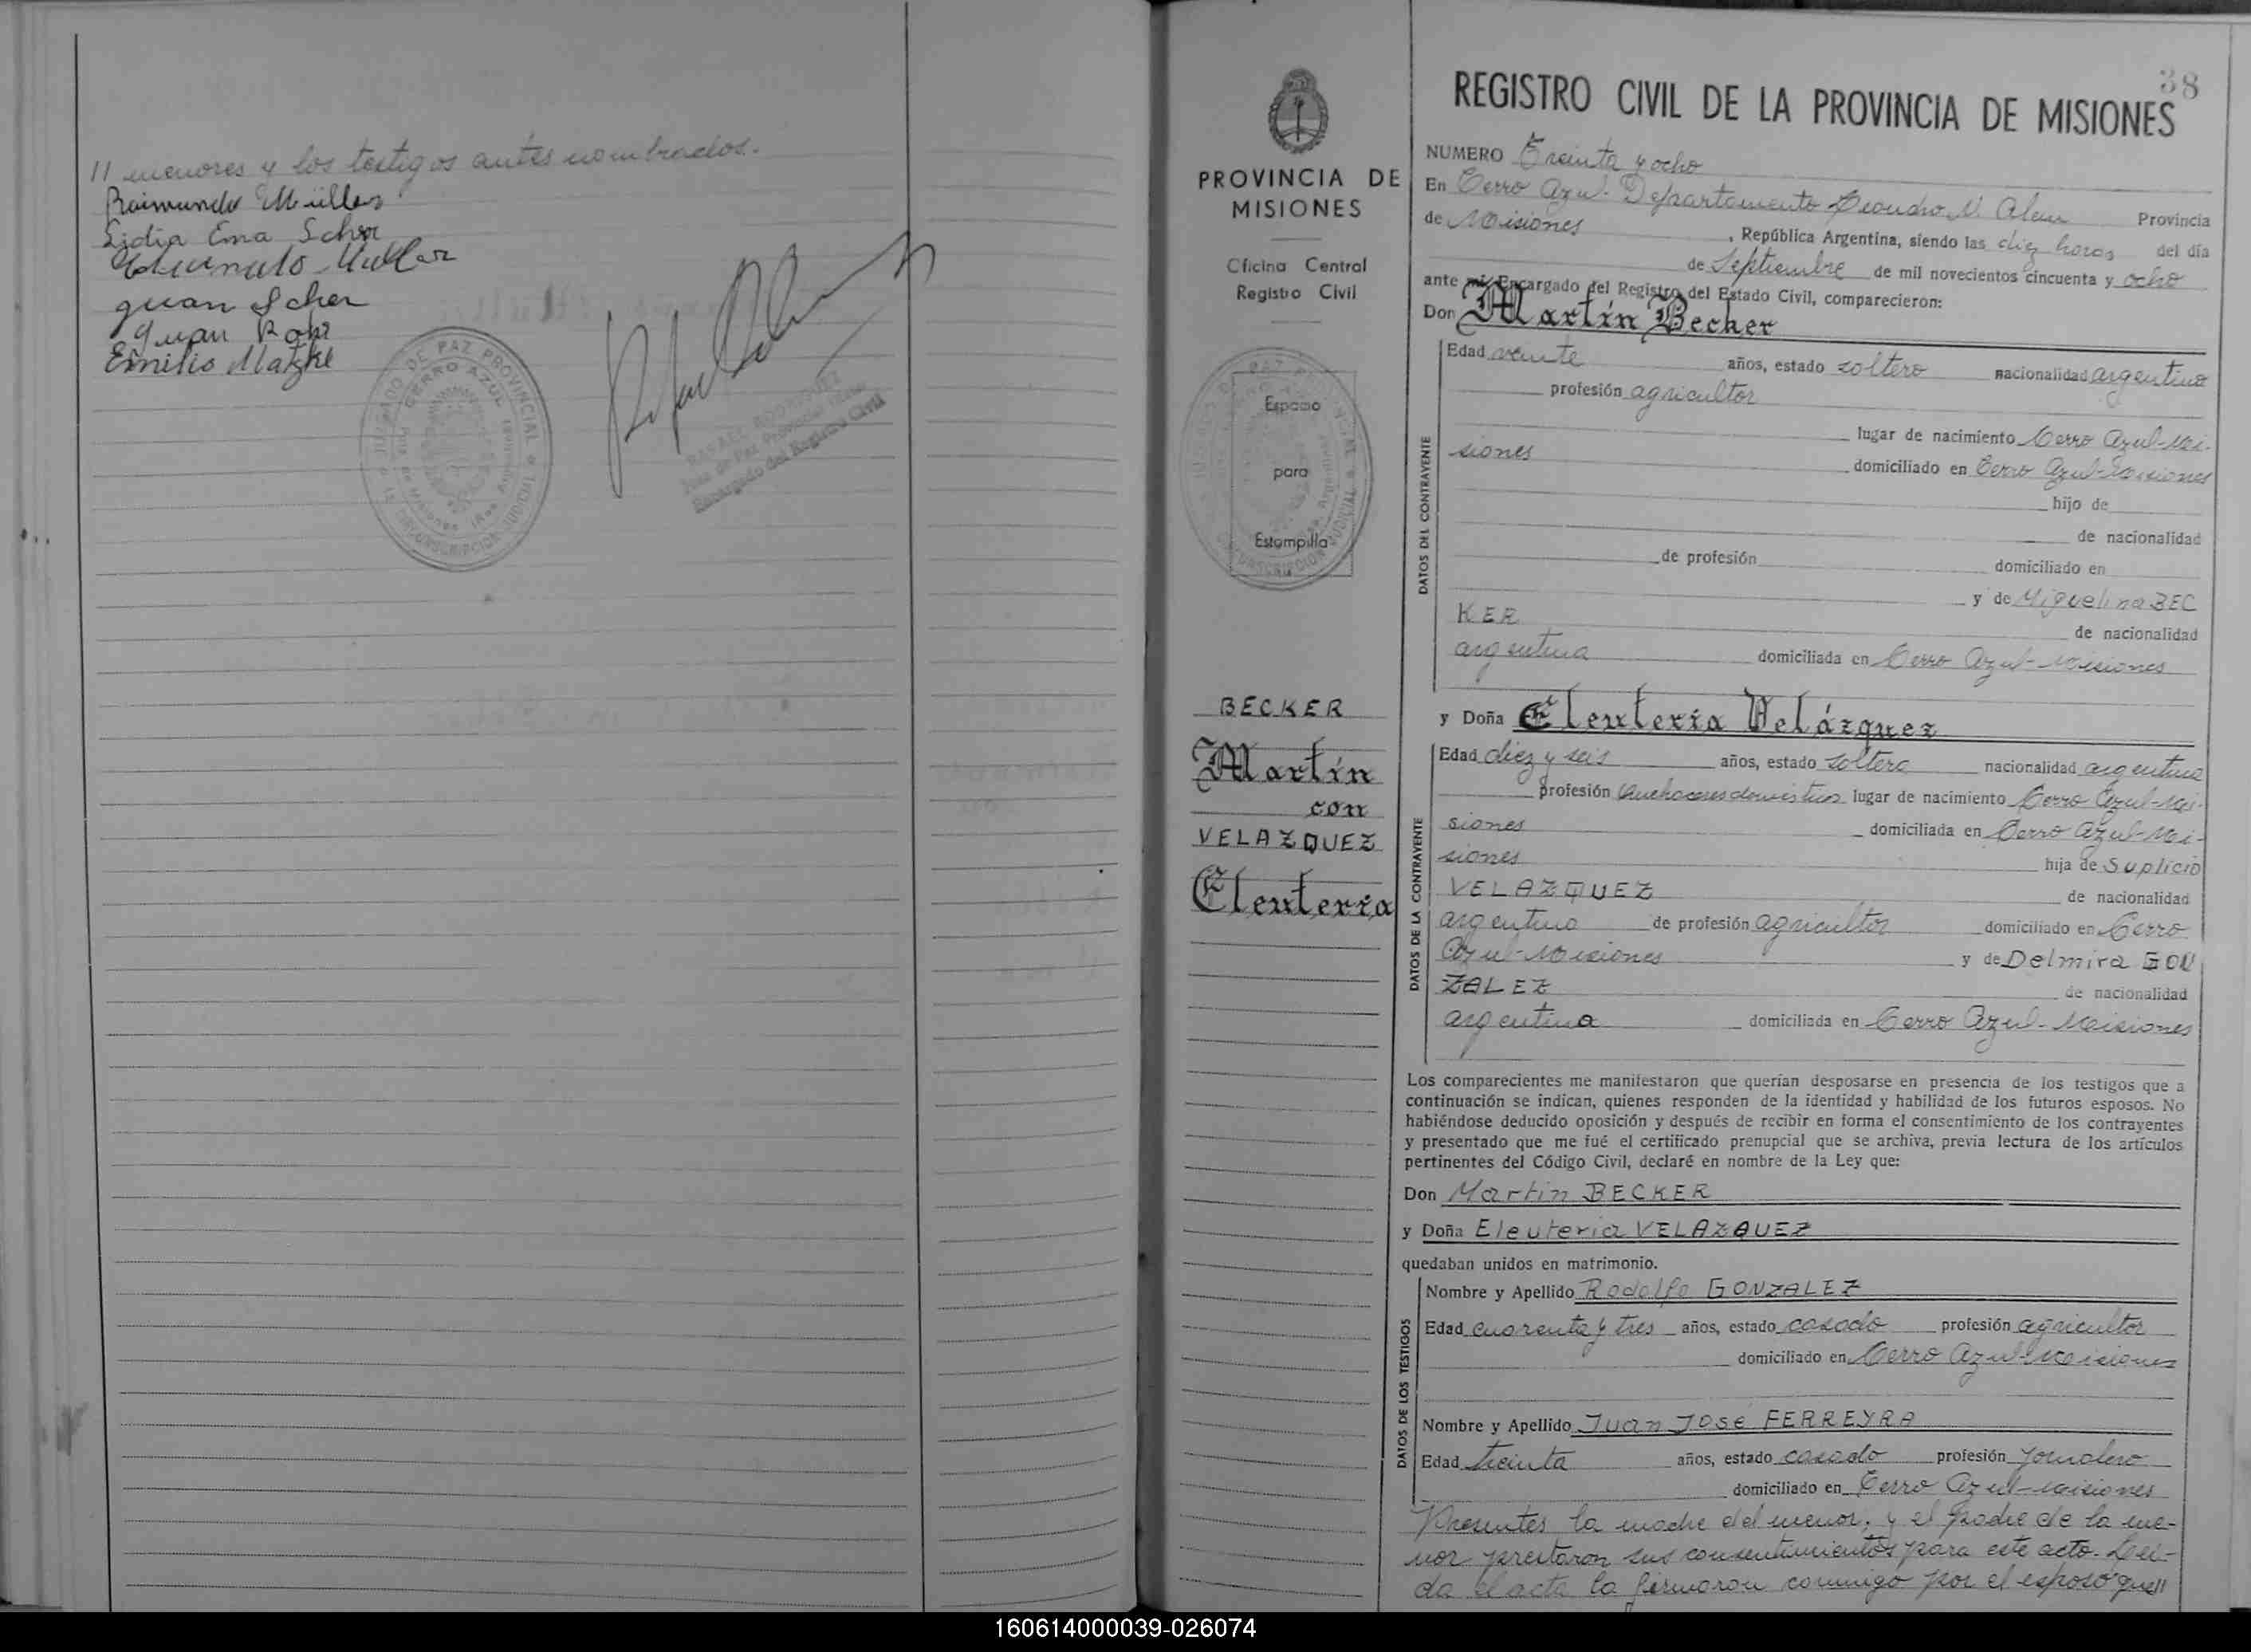 // menores y los testigos antes nombrados.
Raimundo Müller
Lidia Ema Scher
Juan Scher
Juan Rohr
Emilio Matzke
JUZGADO DE PAZ PROVINCIAL
CERRO AZUL
CIRCUNSCRIPCION JUDICIAL
RAFAEL RODRIGUEZ
Juez de Paz Provincial Titular
Encargado del Registro Civil
38
REGISTRO CIVIL DE LA PROVINCIA DE MISIONES
PROVINCIA DE
MISIONES
Oficina Central
Registro Civil
Espacio
para
Estampilla
BECKER
Martín
con
VELAZQUEZ
Eleuteria
NUMERO Treinta y ocho
En Cerro Azul. Departamento Leandro N. Alem Provincia
de Misiones, República Argentina, siendo las diez horas del día
de Septiembre de mil novecientos cincuenta y ocho
ante mí, Encargado del Registro del Estado Civil, comparecieron:
Don Martín Becker
DATOS DEL CONTRAYENTE
Edad veinte años, estado soltero nacionalidad argentina
profesión agricultor
lugar de nacimiento Cerro Azul-Mi-
siones domiciliado en Cerro Azul-Misiones
hijo de
de nacionalidad
de profesión domiciliado en
y de Miguelina BEC
KER de nacionalidad
argentina domiciliada en Cerro Azul-Misiones
y Doña Eleuteria Velázquez
DATOS DE LA CONTRAYENTE
Edad diez y seis años, estado soltera nacionalidad argentina
profesión quehaceres domésticos lugar de nacimiento Cerro Azul-Mi-
siones domiciliada en Cerro Azul-Mi-
siones hija de Suplicio
VELAZQUEZ de nacionalidad
argentina de profesión agricultor domiciliado en Cerro
Azul-Misiones y de Delmira GON
ZALEZ de nacionalidad
argentina domiciliada en Cerro Azul-Misiones
Los comparecientes me manifestaron que querían desposarse en presencia de los testigos que a
continuación se indican, quienes responden de la identidad y habilidad de los futuros esposos. No
habiéndose deducido oposición y después de recibir en forma el consentimiento de los contrayentes
y presentado que me fué el certificado prenupcial que se archiva, previa lectura de los artículos
pertinentes del Código Civil, declaré en nombre de la Ley que:
Don Martin BECKER
y Doña Eleuteria VELAZQUEZ
quedaban unidos en matrimonio.
DATOS DE LOS TESTIGOS
Nombre y Apellido Rodolfo GONZALEZ
Edad cuarenta y tres años, estado casado profesión agricultor
domiciliado en Cerro Azul-Misiones
Nombre y Apellido Juan José FERREYRA
Edad treinta años, estado casado profesión jornalero
domiciliado en Cerro Azul-Misiones
Presentes la madre del menor, y el padre de la me-
nor prestaron sus consentimientos para este acto. Leí-
da el acta la firmaron conmigo por el esposo que//
160614000039-026074